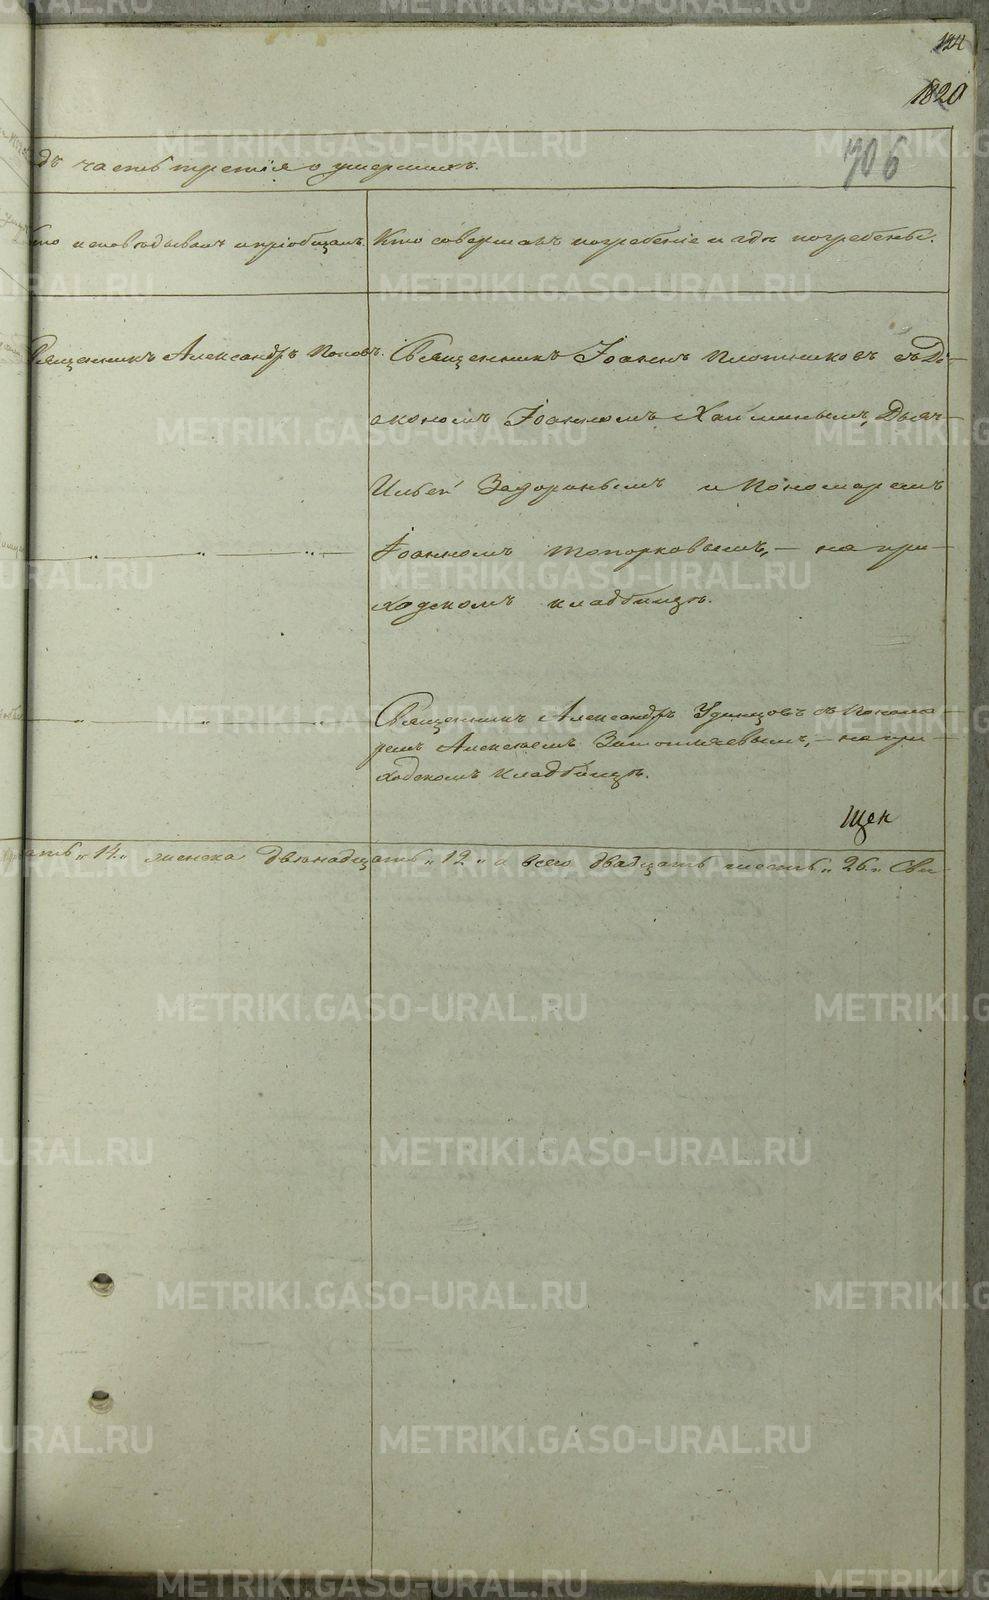 124
1820
706
дъ часть третія о умершихъ.
кто исповѣдывалъ и пріобщалъ.
Кто совершалъ погребеніе и гдѣ погребены.
Священникъ Александръ Поповъ.
Священникъ Іоаннъ Плотниковъ съ Ді-
акономъ Іоанномъ Хайминымъ, Дьяч-
Ильей Задоринымъ и Пономаремъ
Іоанномъ Топорковымъ, — на при-
ходскомъ кладбищѣ.
Священникъ Александръ Удинцовъ съ Понома-
ремъ Алексѣемъ — на при-
ходскомъ кладбищѣ.
Щек
атъ „14„ женска двѣнадцать „12„ а всего двадцать шесть „26.„ Сви-
METRIKI.GASO-URAL.RU